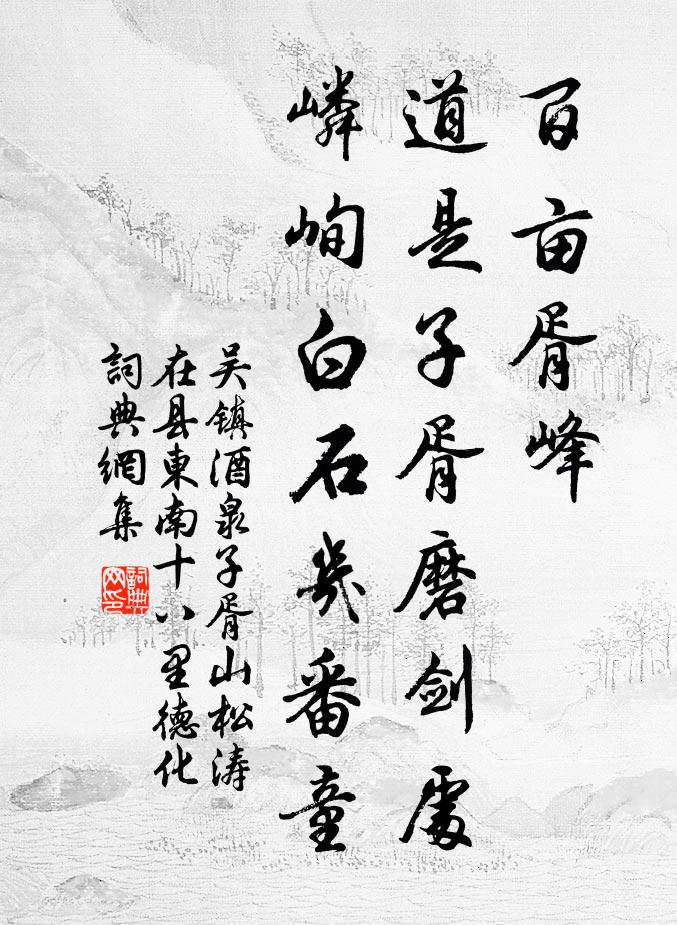 百亩胥峰
道是子胥磨剑處
嶙峋白石幾番童
吴镇酒泉子胥山松涛
在县東南十八里德化
詞典網集
詞典网印